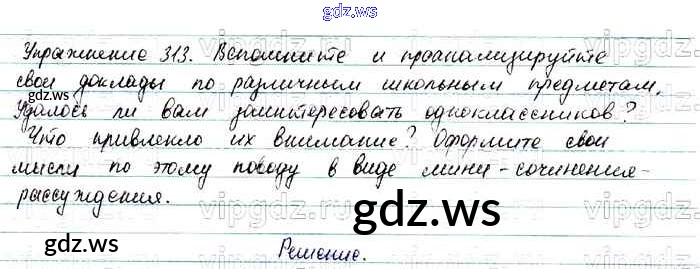 gdz.ws
Упражнение 313. Вспомните и проанализируйте
свои доклады по различным школьным предметам.
gdz.ws
Удалось ли вам заинтересовать одноклассников?
Что привлекло их внимание? Оформите свои
мысли по этому поводу в виде мини-сочинения-
рассуждения.
vipgdz.ru
gdz.ws
gdz.ws
Решение.